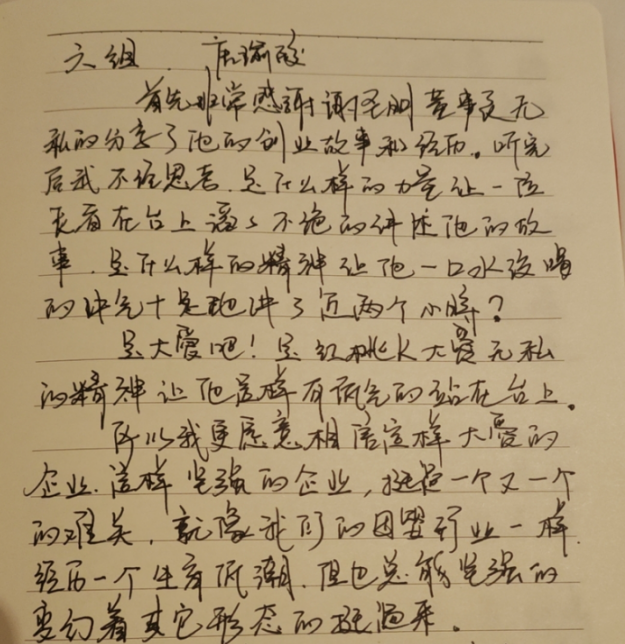 六组 . 唐瑜皎
首先非常感谢谢圣明董事长无
私的分享了他的创业故事和经历。听完
后我不经思考.是什么样的力量让一位
长者在台上滔滔不绝的讲述他的故
事.是什么样的精神让他一口水没喝
的讲完十足地讲了近两个小时?
是大爱吧!是红桃K大爱无私
的精神让他这样有底气的站在台上。
所以我更愿意相信这样大爱的
企业.这样坚强的企业,挺过一个又一个
的难关,就像我们的行业一样
经历一个生育低潮.但也总能坚强的
变幻着其它形态的挺过来。